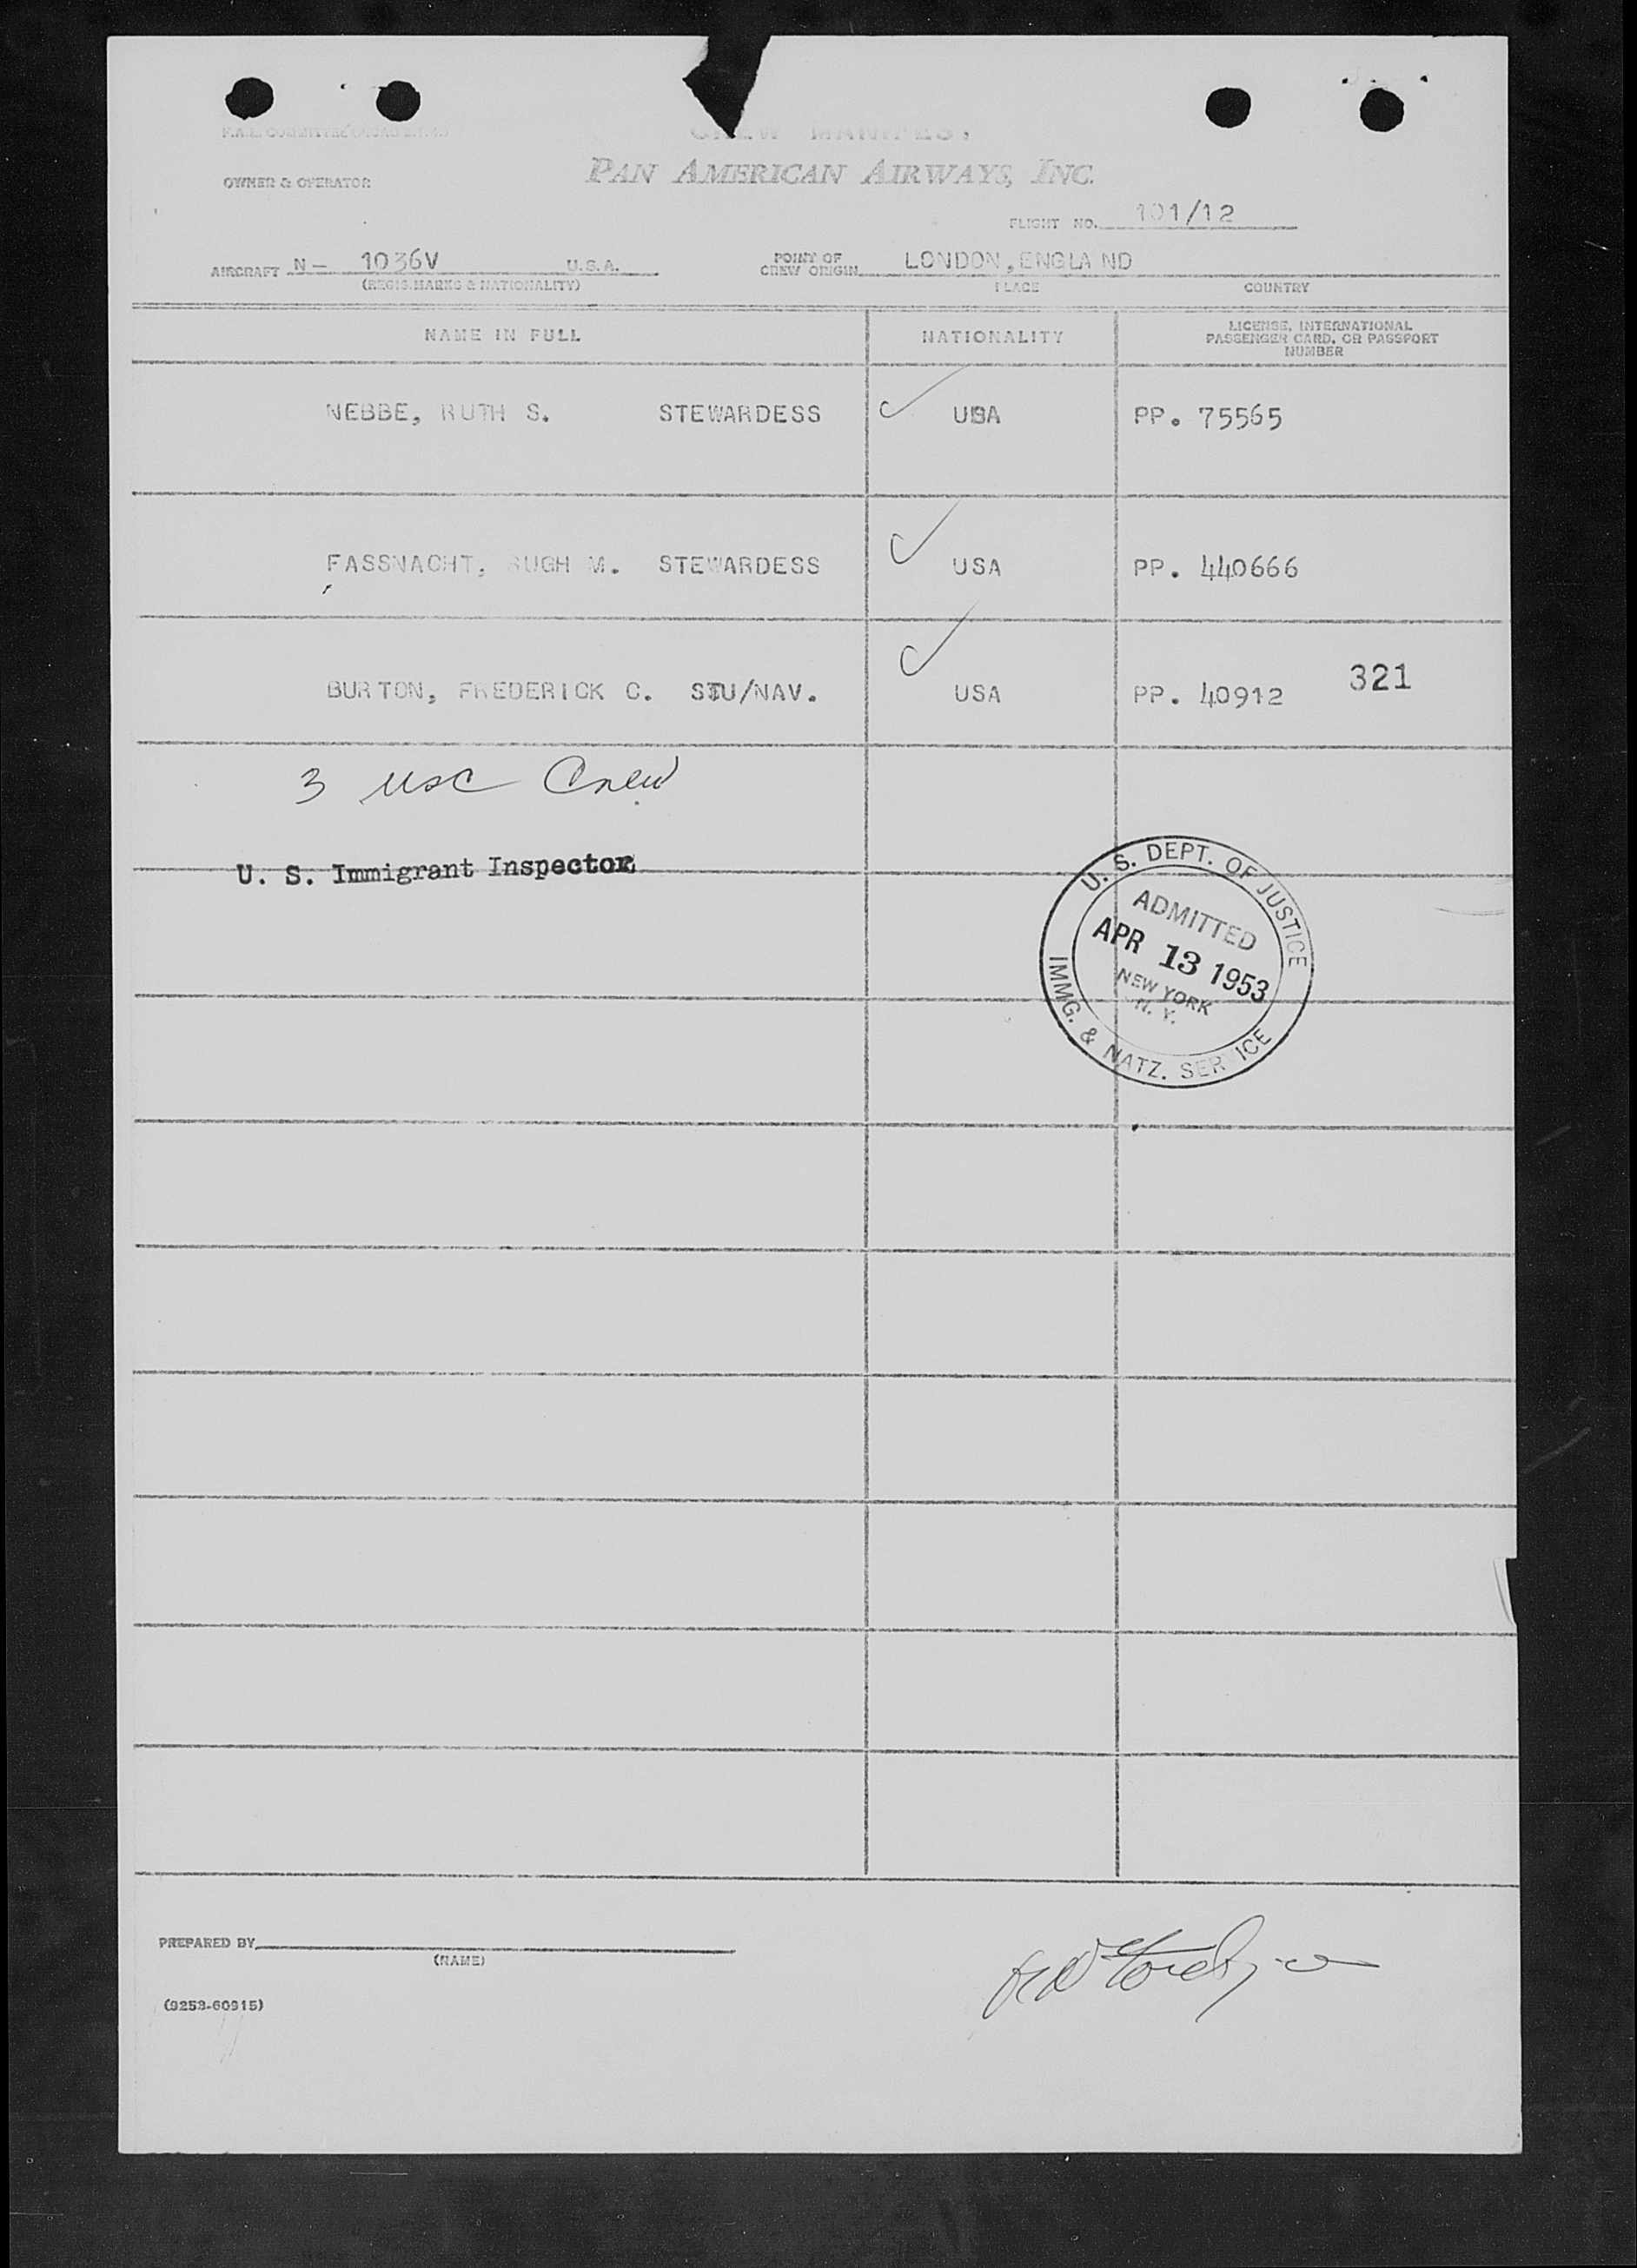 CREW MANIFEST
OWNER & OPERATOR
PAN AMERICAN AIRWAYS, INC.
FLIGHT NO. 101/12
AIRCRAFT N- 1036V U.S.A.
(REGIS. MARKS & NATIONALITY)
POINT OF
CREW ORIGIN LONDON, ENGLAND
PLACE COUNTRY
NAME IN FULL
NATIONALITY
LICENSE, INTERNATIONAL
PASSENGER CARD, OR PASSPORT
NUMBER
NEBBE, RUTH S. STEWARDESS USA PP. 75565
FASSNACHT, M. STEWARDESS USA PP. 440666
BURTON, FREDERICK C. STU/NAV. USA PP. 40912 321
3 USC Crew
U. S. Immigrant Inspector
U. S. DEPT. OF JUSTICE
ADMITTED
APR 13 1953
NEW YORK
N. Y.
IMMG. & NATZ. SERVICE
PREPARED BY
(NAME)
(9253-60915)